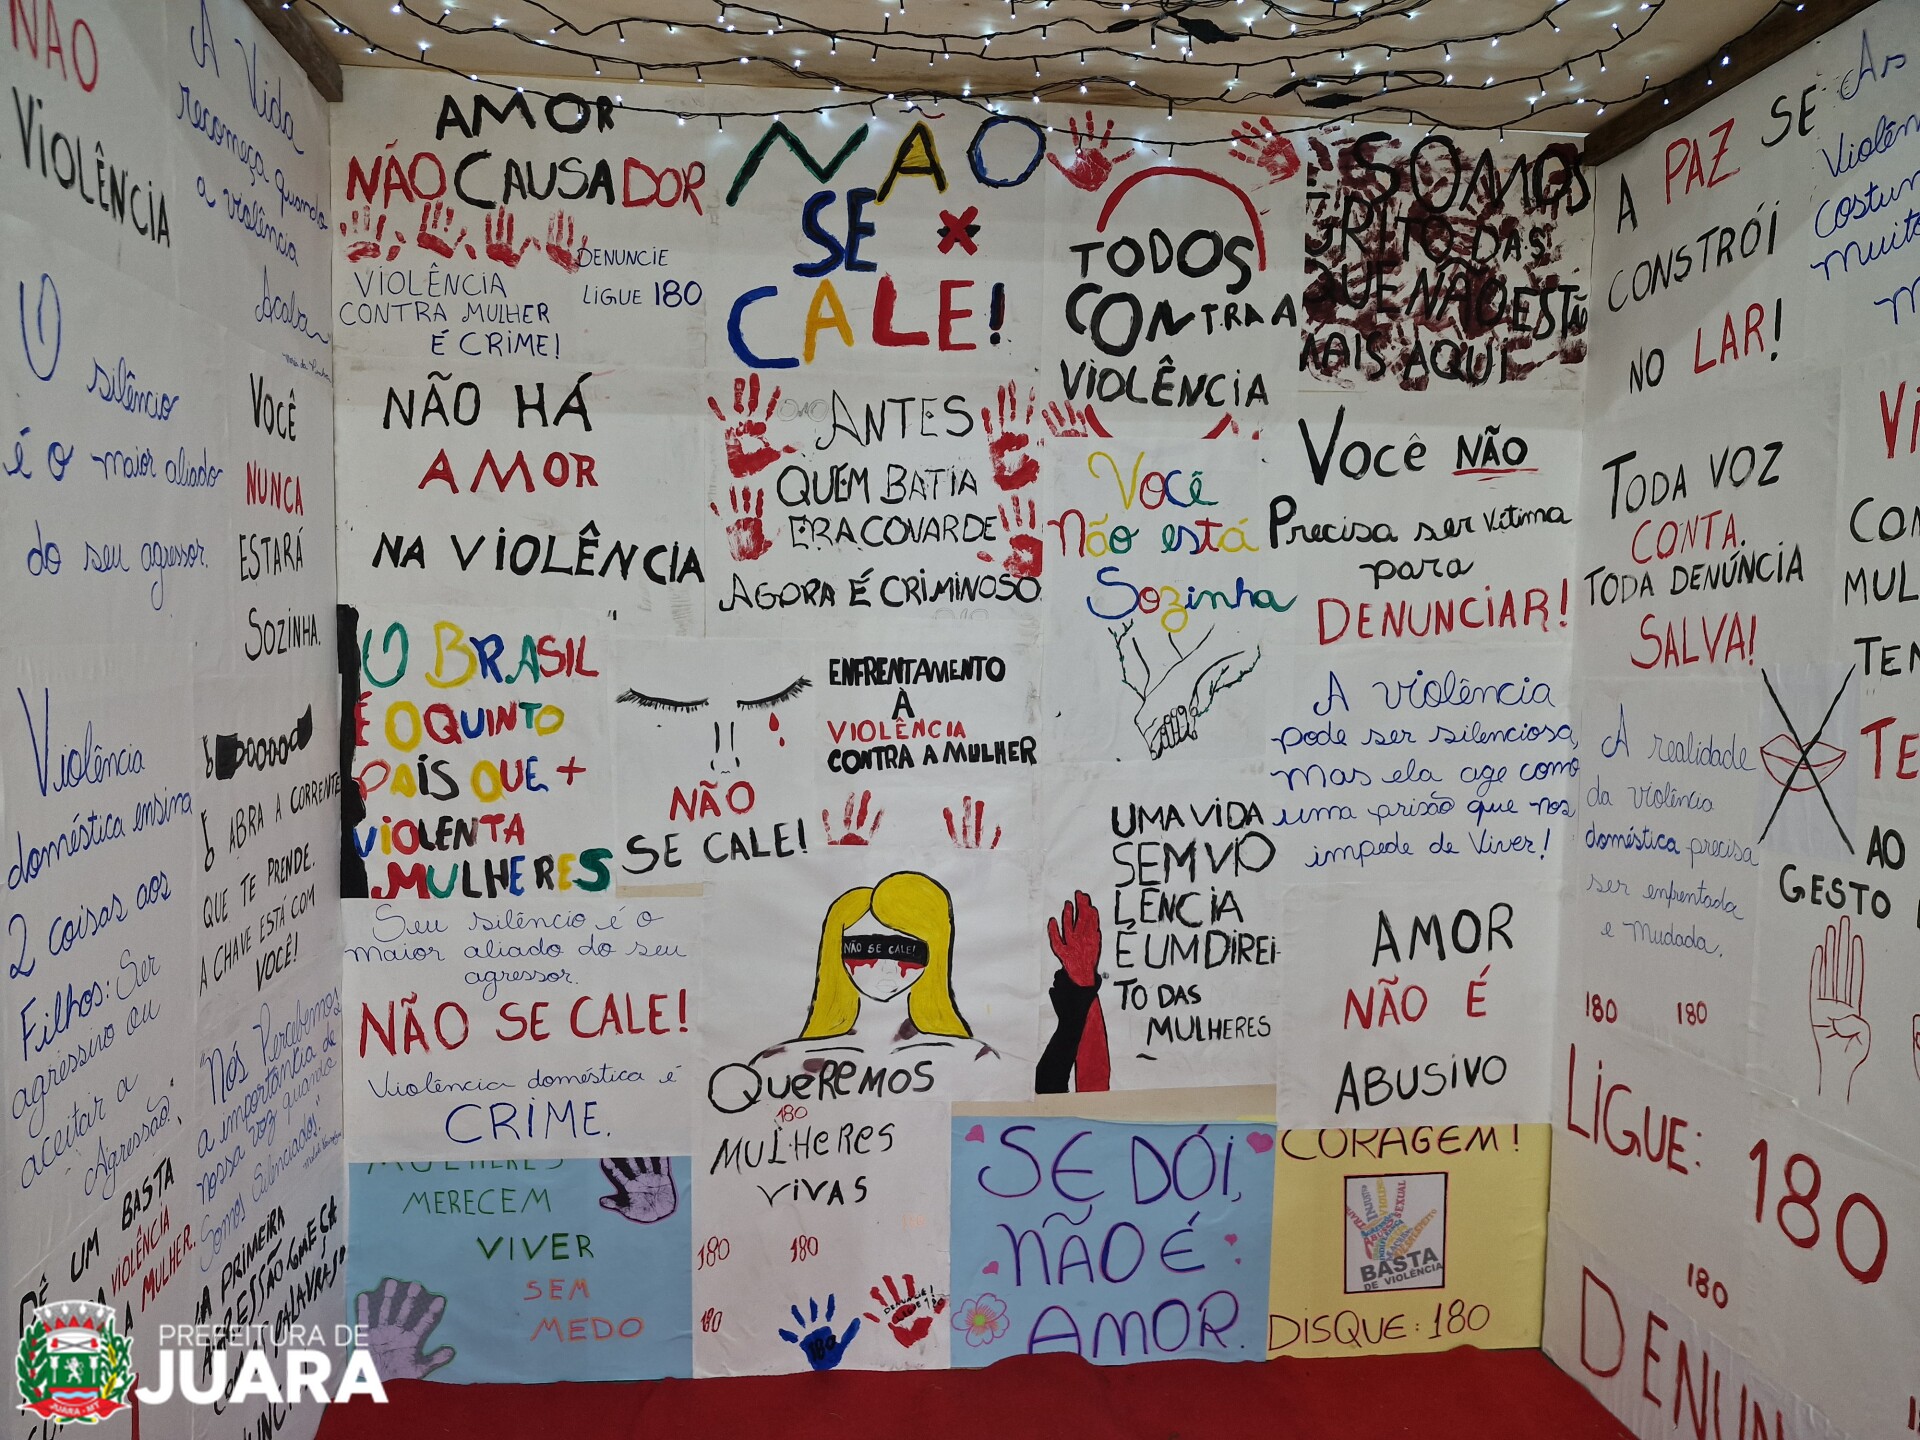 NÃO
VIOLÊNCIA
A Vida
recomeça quando
a violência
Acaba
O
silêncio
é o maior aliado
do seu agressor.
VOCÊ
NUNCA
ESTARÁ
SOZINHA.
Violência
doméstica ensina
2 coisas aos
Filhos: Ser
agressivo ou
aceitar a
Agressão.
ABRA A CORRENTE
QUE TE PRENDE.
A CHAVE ESTÁ COM
VOCÊ!
"Nós Percebemos
a importância de
nossa voz quando
Somos Silenciados."
DÊ UM BASTA
VIOLÊNCIA
A MULHER.
A PRIMEIRA
AGRESSÃO COMEÇA
AMOR
NÃO CAUSA DOR
DENUNCIE
LIGUE 180
VIOLÊNCIA
CONTRA MULHER
É CRIME!
NÃO HÁ
AMOR
NA VIOLÊNCIA
O BRASIL
É O QUINTO
PAÍS QUE +
VIOLENTA
MULHERES
Seu silêncio é o
maior aliado do seu
agressor.
NÃO SE CALE!
Violência doméstica é
CRIME.
MULHERES
MERECEM
VIVER
SEM
MEDO
NÃO
SE
CALE!
ANTES
QUEM BATIA
ERA COVARDE
AGORA É CRIMINOSO
NÃO
SE CALE!
ENFRENTAMENTO
À
VIOLÊNCIA
CONTRA A MULHER
NÃO SE CALE!
QUEREMOS
180
MULHERES
VIVAS
180 180
180
180
DENUNCIE!
LIGUE 180
TODOS
CONTRA A
VIOLÊNCIA
Você
Não está
Sozinha
UMA VIDA
SEM VIO
LENCIA
É UM DIREI
TO DAS
MULHERES
SE DÓI,
NÃO É
AMOR.
SOMOS
GRITO DAS
QUE NÃO ESTÃO
MAIS AQUI
Você NÃO
Precisa ser vítima
para
DENUNCIAR!
A violência
pode ser silenciosa,
mas ela age como
uma prisão que nos
impede de Viver!
AMOR
NÃO É
ABUSIVO
CORAGEM!
BASTA
DE VIOLÊNCIA
DISQUE: 180
A PAZ SE
CONSTRÓI
NO LAR!
TODA VOZ
CONTA.
TODA DENÚNCIA
SALVA!
A realidade
da violência
doméstica precisa
ser enfrentada
e mudada.
180 180
LIGUE: 180
180
AO
GESTO
PREFEITURA DE
JUARA
JUARA - MT